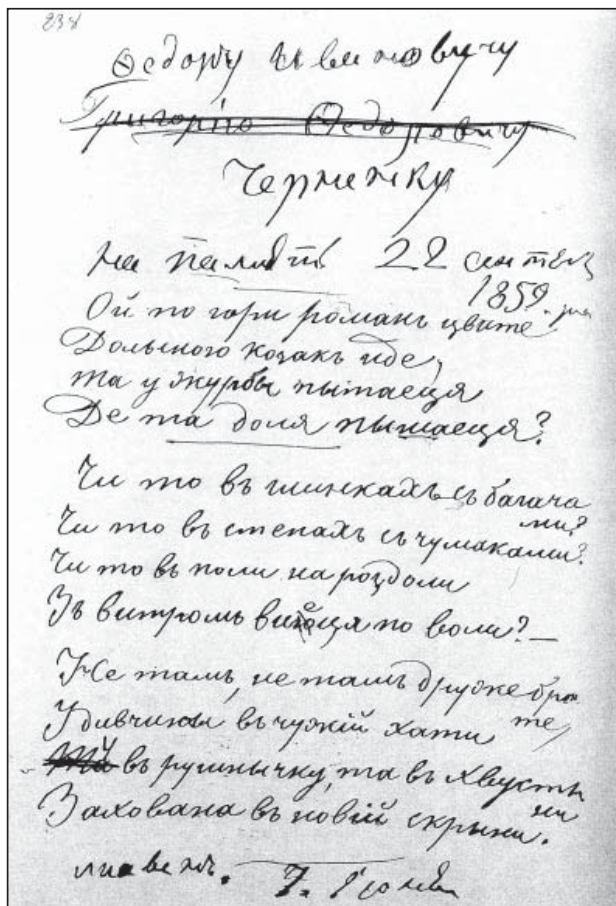 Ѳедору Ивановичу
Григорію Ѳедоровичу
Черненку
на память 22 сентяб
1859.
Ой по гори романъ цвите
Долыною козакъ иде,
Та у журбы пытаеця
Де та доля пышаеця?
Чи то въ шинкахъ съ багача
ми?
Чи то въ степахъ съ чумаками?
Чи то въ поли на роздоли
Зъ витромъ виеця по воли?—
Не тамъ, не тамъ друже бра
те,
У дивчины въ чужій хати
въ рушнычку, та въ хвусты
ни
Захована въ новій скрыни.
7. Июня